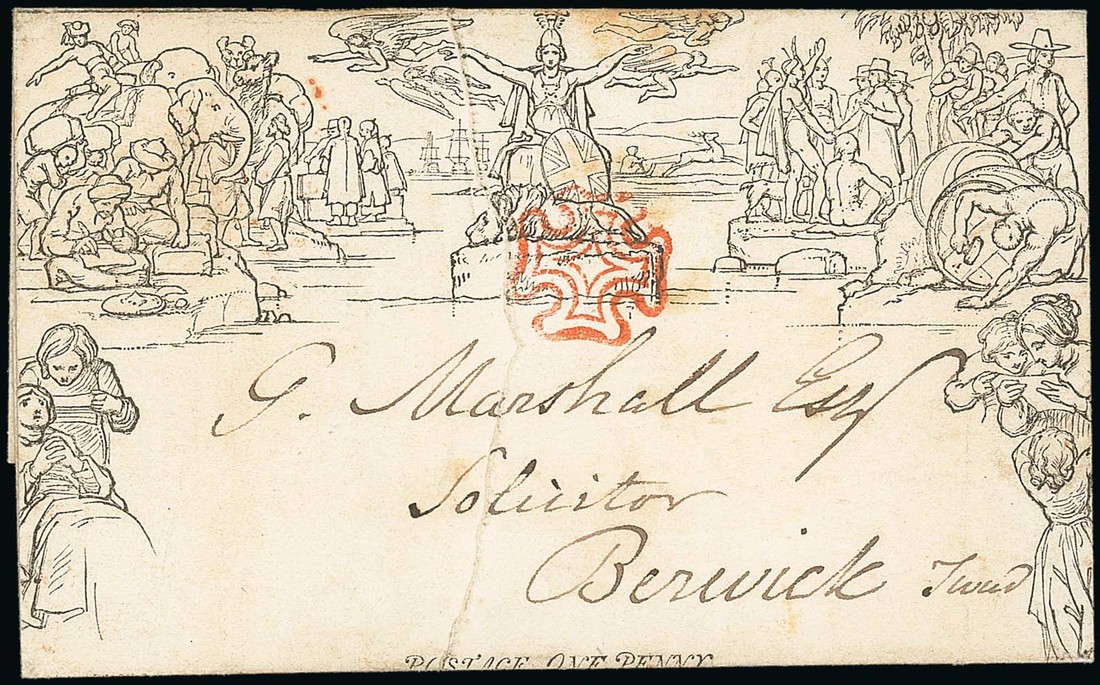 G. Marshall Esqr
Solicitor
Berwick Tweed
POSTAGE ONE PENNY